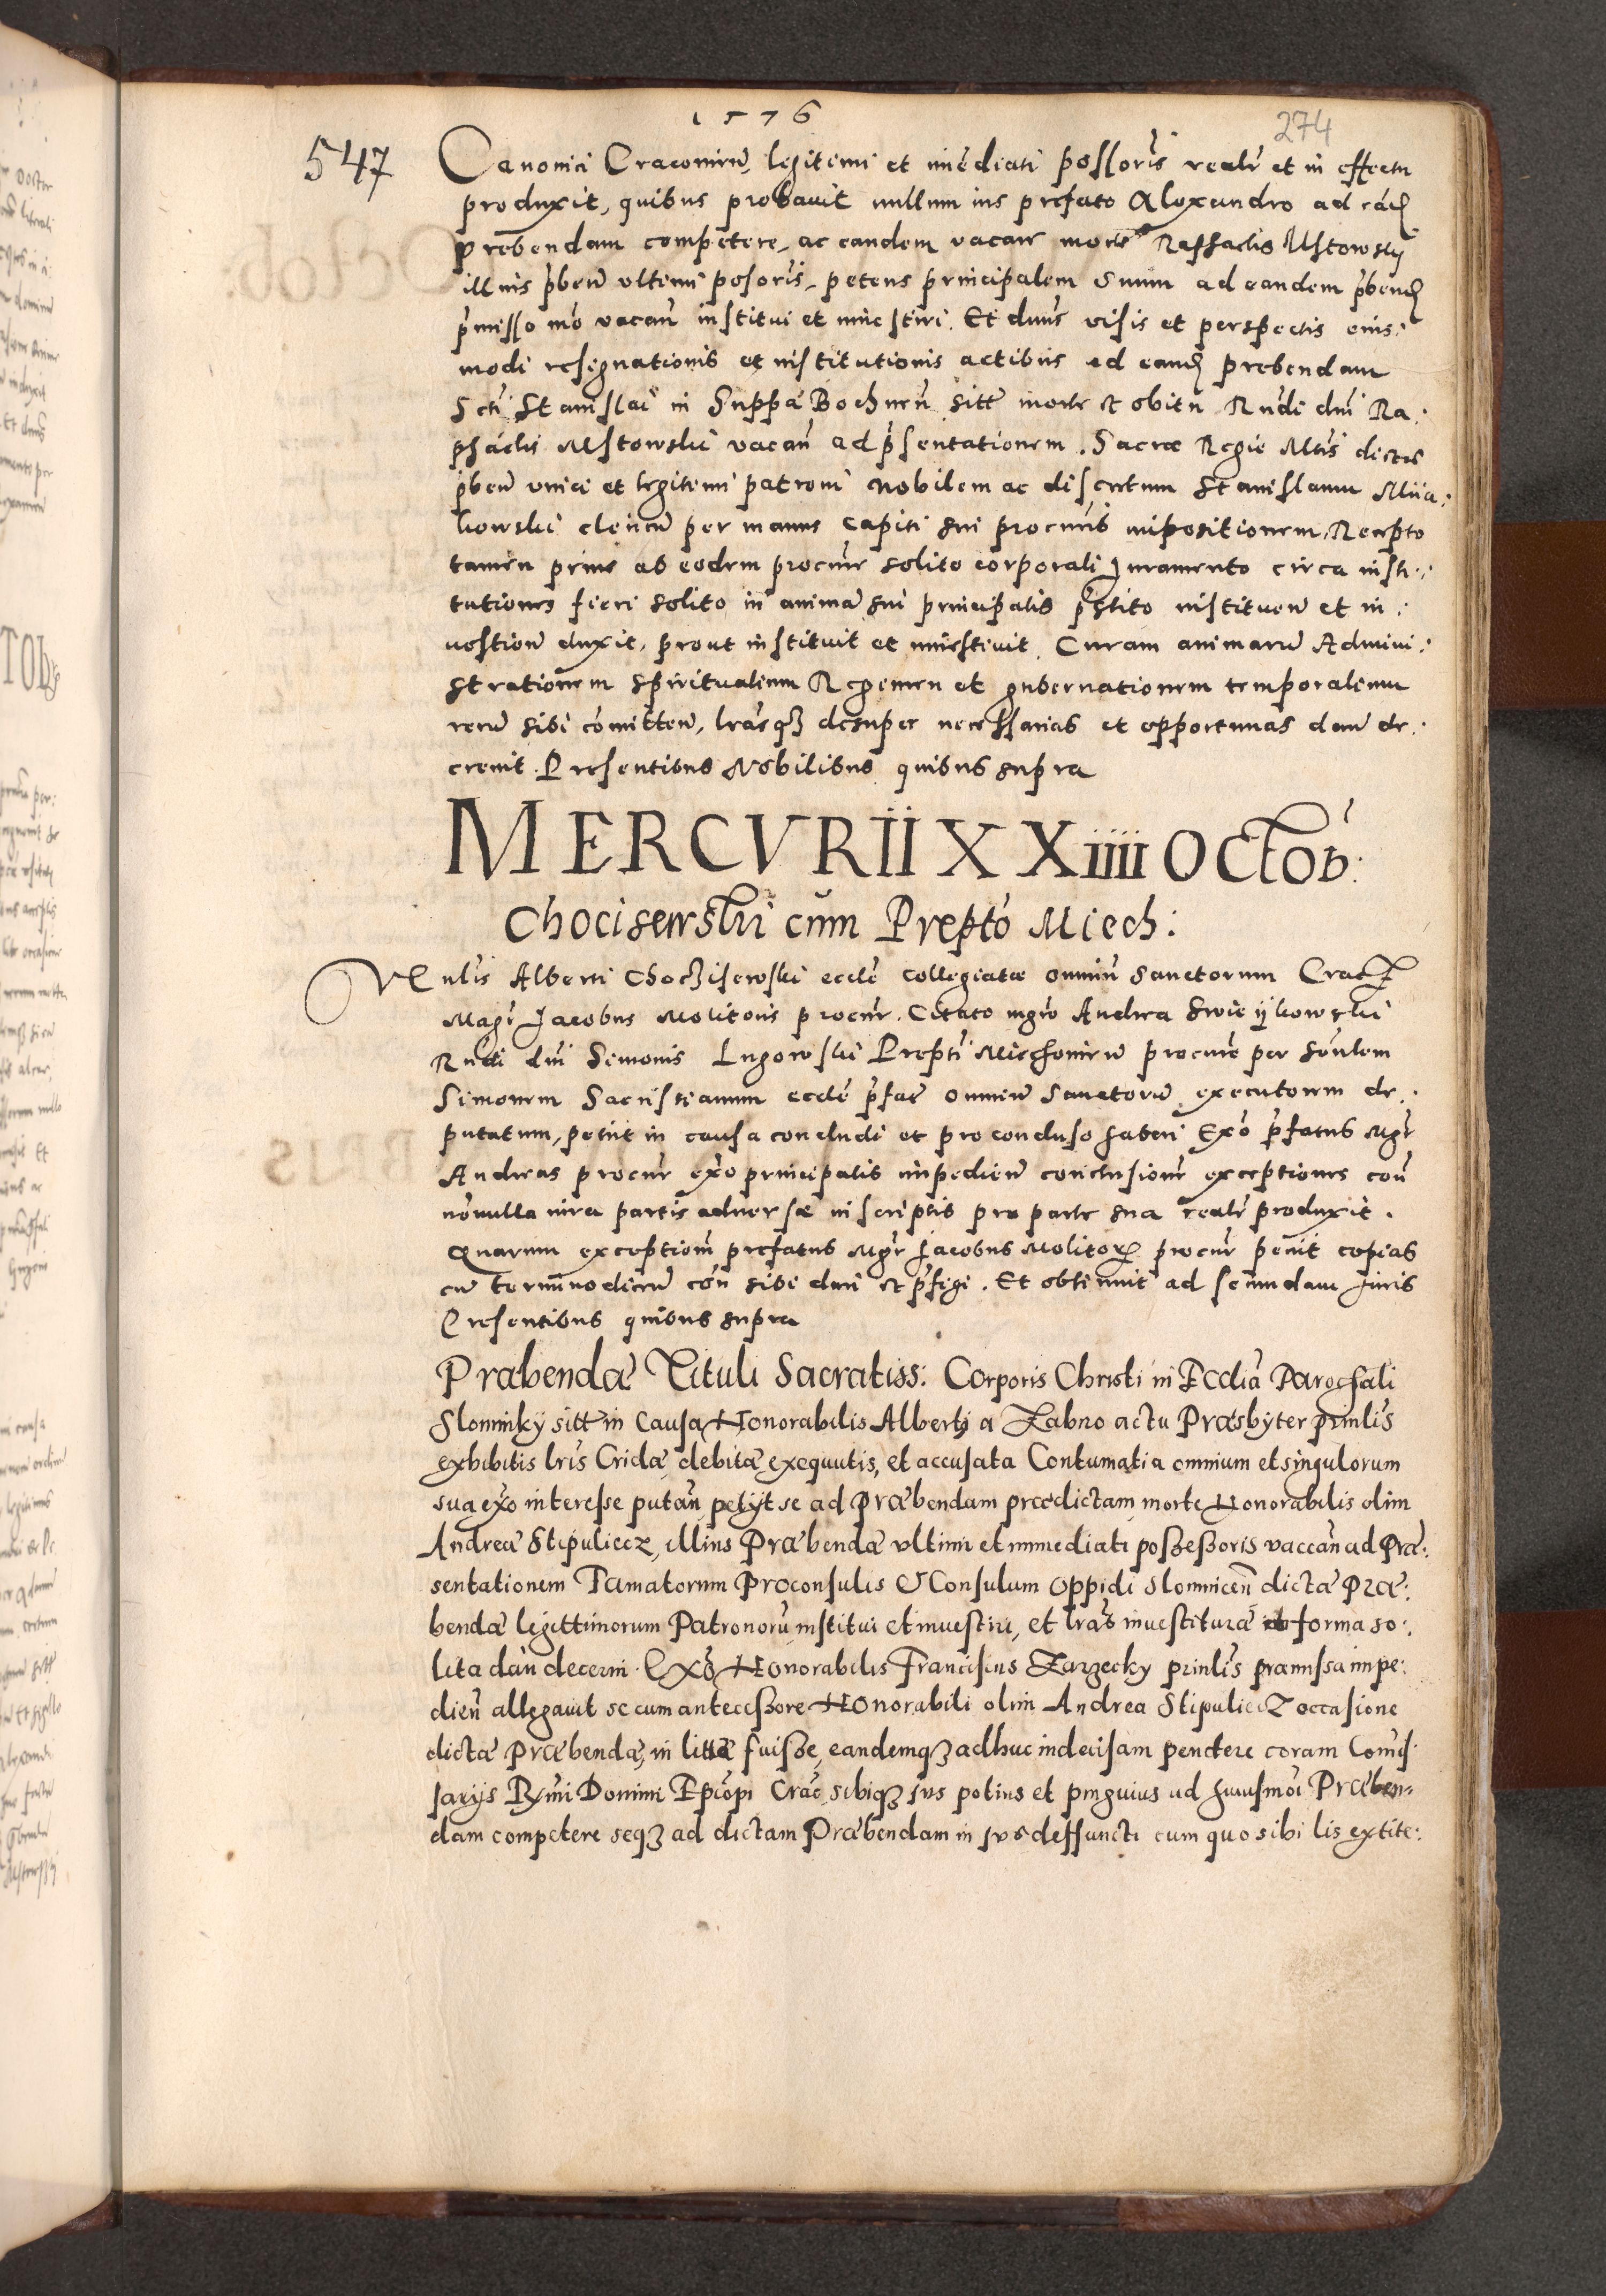 1576
274
547
Canonici Cracovien̄, legitimi et im̄ediati possoris̄ realr̄ et in effectu
produxit, quibus probavit nullum ius prefato Alexandro ad eād
prebendam competere, ac eandem vacare morte Raphaelis Mstowskÿ
illius p̄ben̄ ultimi posoris̄, petens principalem suum ad eandem p̄bend
p̄misso mō vacan̄ institui et investiri. Et dn̄us visis et perspectis eius:
modi resignationis et institutionis actibus ad eand prebendam
Scti Stanislai in Suppa Bochnen̄ sitt̄ morte et obitu Rn̄di dn̄i Ra:
phaelis Mstowski vacan̄ ad p̄sentationem. Sacrae Regie Mtīs dictae
p̄ben̄ unici et legitimi patroni Nobilem ac discretum Stanislaum
clericum per manus capiti sui procuris impositionem, Recepto
tamen prius ab eodem procure solito corporali Juramento circa insti:
tutiones fieri solito in animā sui principalis p̄stito instituen̄ et in:
vestien̄ duxit, prout instituit et investivit. Curam animarū Admini:
strationem spiritualium Regimen et gubernationem temporalium
rerū sibi com̄itten̄, lr̄asq3 desuper necessarias et opportunas dan̄ de:
crevit. Presentibus Nobilibus quibus supra
MERCVRII XXiiii OCtob:
Chociserrski cum Prepto Miech:
Alberti Choczisewski eccle collegiatae omniū sanctorum Crac
Magr Jacobus Molitoris procur. Citato mgro Andrea
Rn̄di dn̄i Simonis Lugowski Prepti Miechovien̄ procure per
Simonem Sacristianum eccle p̄fate omniū Sanctorū executorem de:
putatum, petiit in causa concludi et pro concluso haberi Exo p̄fatus Mgr
Andreas procur exo principalis impedien̄ conclusionē exceptiones con̄
nōnulla iura partis adversae in scriptis pro parte sua realr̄ produxit.
Quarum exceptionū prefatus Mgr Jacobus Molitoris procur petiit copias
cū termino dicen̄ con̄ sibi dari et p̄figi. Et obtinuit ad secundam Juris
Presentibus quibus supra
Præbendæ Tituli Sacratiss: Corporis Christi in Ecclīa Parochali
Slomnikÿ sitt̄ in Causa Honorabilis Albertj a Zabno actu Præsbÿter prinlis
exhibitis lr̄is Cridæ debitæ exequutis, et accusata Contumatia omnium et singulorum
sua exo interesse putan̄ petÿt se ad Præbendam prædictam morte Honorabilis olim
Andreæ Stipuliecz, illius Præbendæ ultimi et immediati posseßoris vaccan̄ ad Præ:
sentationem Famatorum Proconsulis & Consulum oppidi Slomnicen̄ dictæ Præ:
bendæ legittimorum Patronorū institui et investiri, et lr̄as investituræ forma so:
lita dan̄ decerni. Exo Honorabilis Franciscus Zarzecky prinlis præmissa impe:
dien̄ allegavit se cum antecessore Honorabili olim Andrea Stipuliecz occasione
dictæ Præbendæ, in lite fuisse, eandemq3 adhuc indecisam pendere coram Comis:
sarÿs Rṁi Domini Epīopi Crac̄ sibiq3 jus potius et pinguius ad huiusmōi Præben:
dam competere seq3 ad dictam Præbendam in jus deffuncti cum quo sibi lis extite: